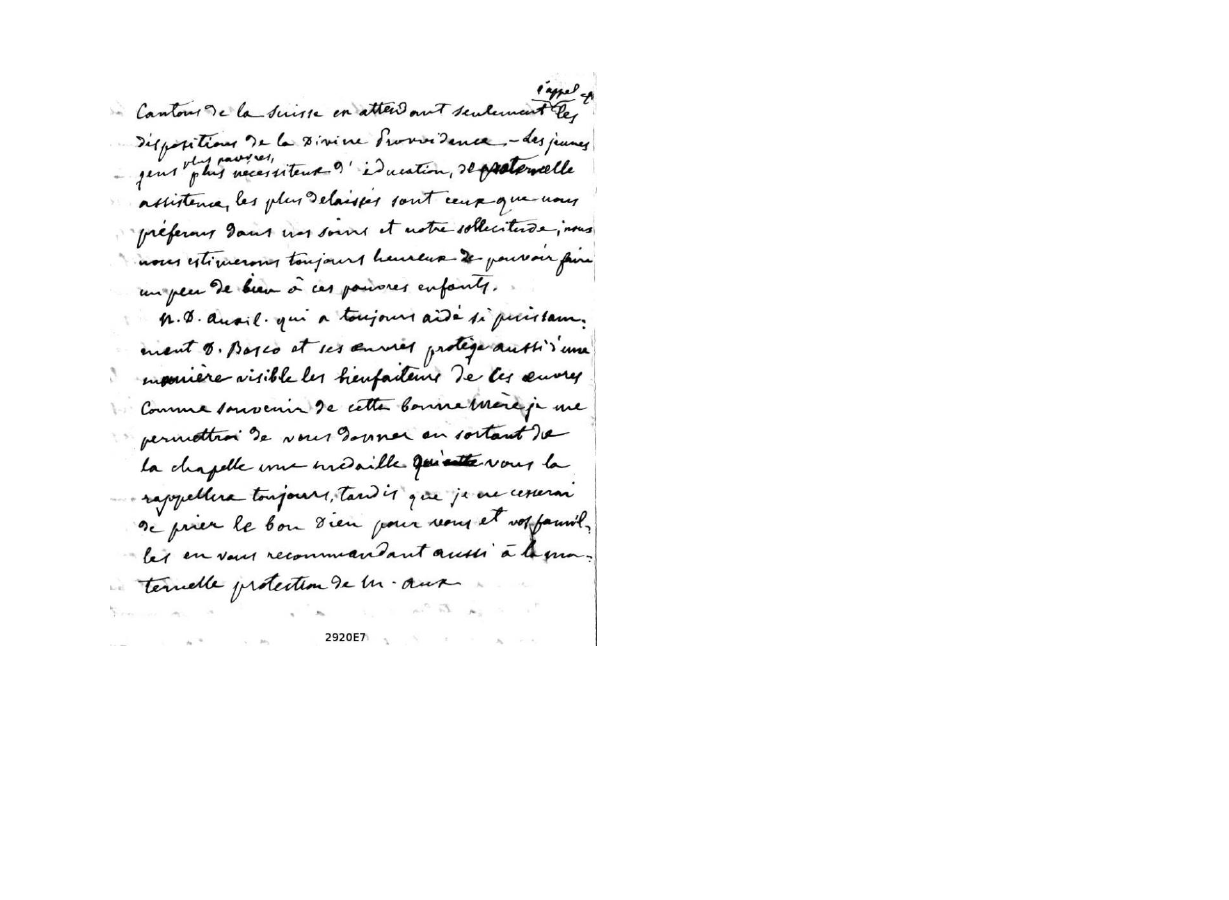 l'appel et
Cantons de la Suisse en attendant seulement les
dispositions de la Divine Provvidence. - Les jeunes
plus pauvres,
gens plus necessiteux d' éducation, de paternelle
assistence, les plus delaissés sont ceux que nous
préferons dans nos soins et notre sollecitude; nous
nous estimerons toujours heureux de pouvoir faire
un peu de bien à ces pauvres enfants.
N. D. Auxil. qui a toujours aidé si puissam-
ment D. Bosco et ses œuvres protège aussi d'une
manière visible les bienfaiteurs de ces œuvres
Comme souvenir de cette bonne Mère je me
permettrai de vous donner en sortant de
la chapelle une medaille qui vous la
rappellera toujours, tandis que je ne cesserai
de prier le bon Dieu pour vous et vos famil-
les en vous recommandant aussi à la ma-
ternelle protection de M. Aux
2920E7